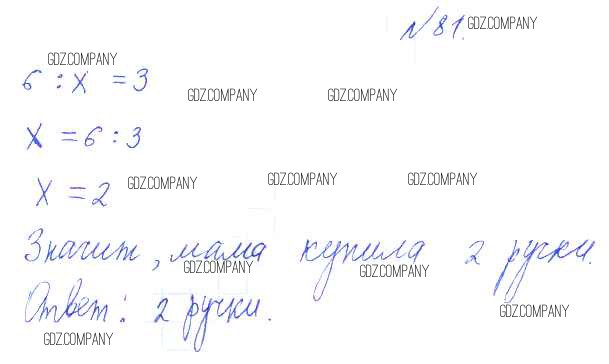 №81. GDZ.COMPANY
GDZ.COMPANY
6 : x = 3
GDZ.COMPANY GDZ.COMPANY
x = 6 : 3
x = 2 GDZ.COMPANY GDZ.COMPANY GDZ.COMPANY
Значит, мама купила 2 ручки.
GDZ.COMPANY GDZ.COMPANY
Ответ: 2 ручки.
GDZ.COMPANY
GDZ.COMPANY